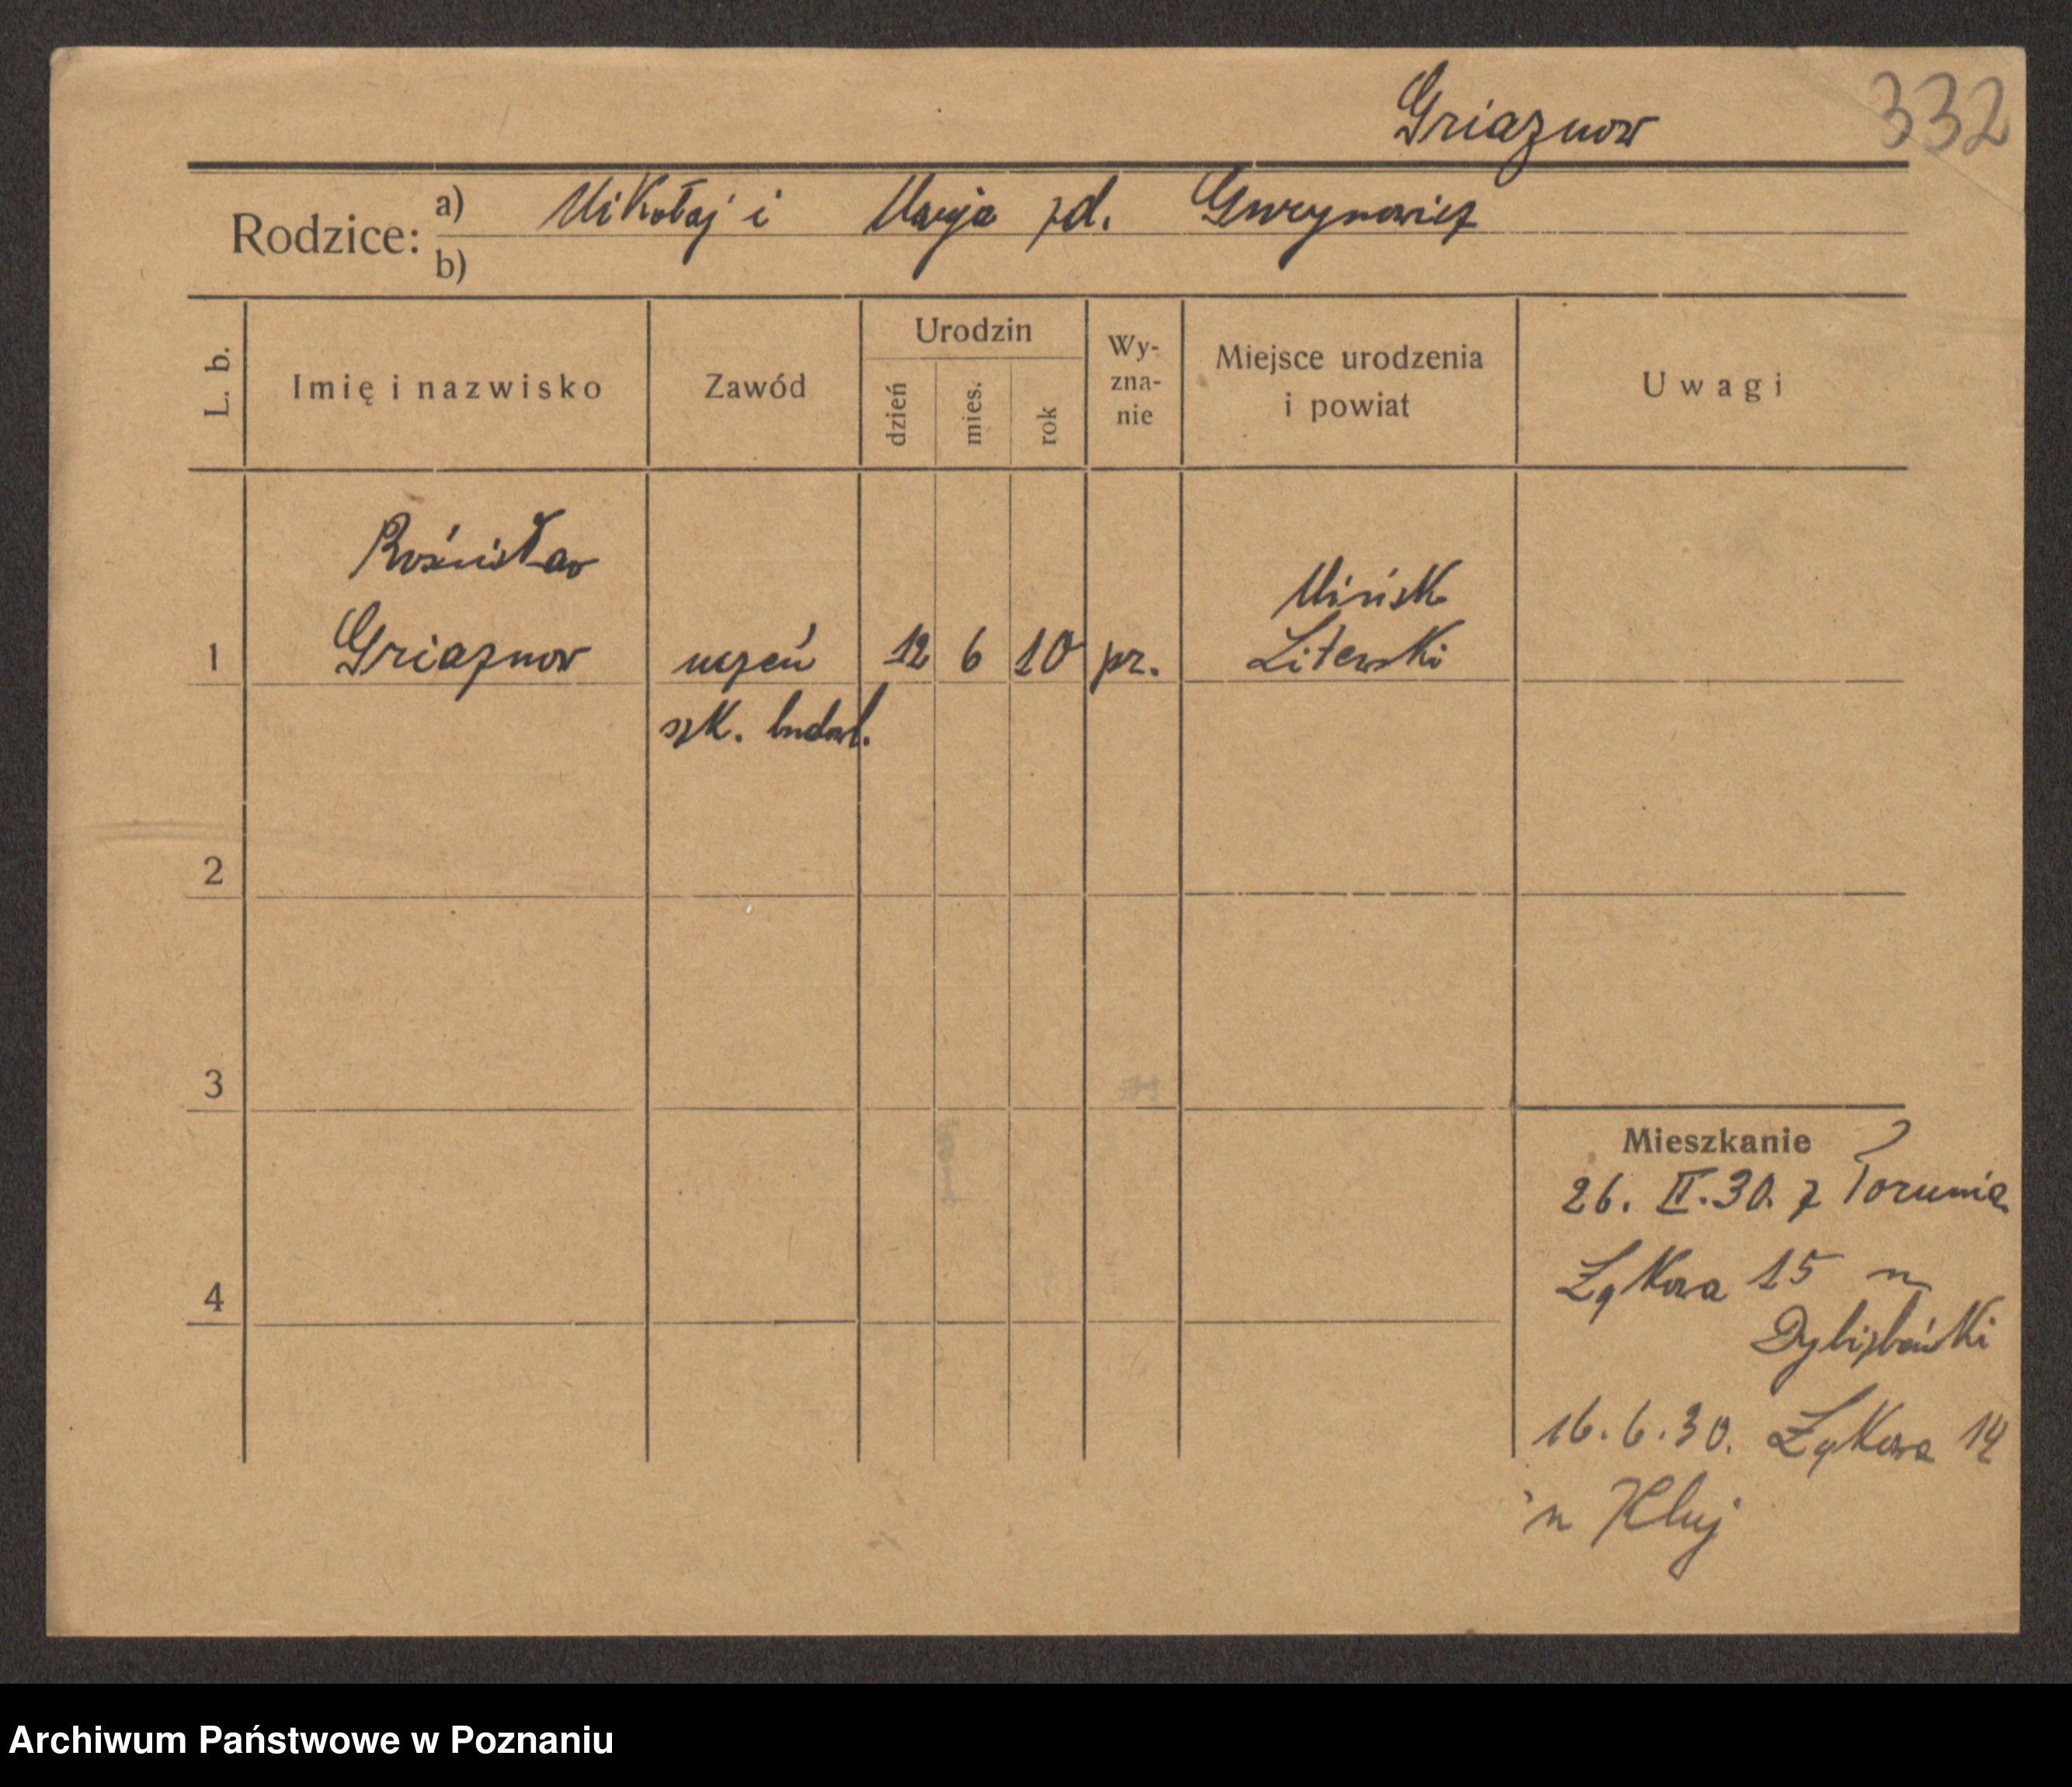 Griaznow
332
Rodzice: a) Mikołaj i Marja zd. Gurynowicz
b)
L. b.
Imię i nazwisko
Zawód
Urodzin
dzień
mies.
rok
Wy-
zna-
nie
Miejsce urodzenia
i powiat
Uwagi
Rościsław
Mińsk
1 Griaznow uczeń 12 6 10 pr. Litewski
szk. budowl.
2
3
Mieszkanie
26. II. 30. z Torunia
Łąkowa 15 u
4
16.6.30. Łąkowa 14
u Kluj
Archiwum Państwowe w Poznaniu